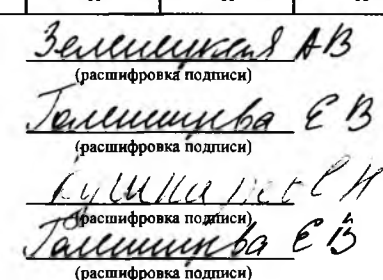 Зеленецкая АВ
(расшифровка подписи)
Голенищева Е В
(расшифровка подписи)
(расшифровка подписи)
Голенищева Е В
(расшифровка подписи)